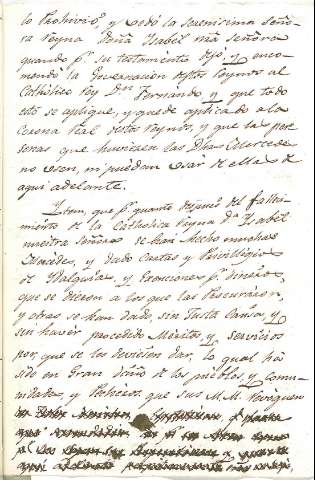 lo Prohivió, y vedó la Serenisima Seño-
ra Reyna Doña Isabel ntrâ señora
quando pr. su testamento dejó, y enco-
mendó la Governacion destos Reynos al
Catholico Rey Dn. Fernando y que todo
esto se aplique, y quede aplicado a la
Corona Real destos Reynos, y que las per-
sonas que huvieren las Dhas Mercedes
no usen, ni puedan usar de ellas de
aqui adelante.
Yten, que pr. quanto despues del falleci-
miento de la Catholica Reyna Da. Isabel
nuestra Señora se han hecho muchas
Mercedes, y dado Cartas y Privilegios
de Ydalguia, y Exenciones pr. dineros,
que se dieron a los que las Procuraron,
y otras se han dado, sin Justa Causa, y
sin haver procedido Meritos, y Servicios
por que se les deviesen dar, lo qual ha
sido en Gran daño de los pueblos, y comu-
nidades, y Pecheros que sus M.M. revoquen